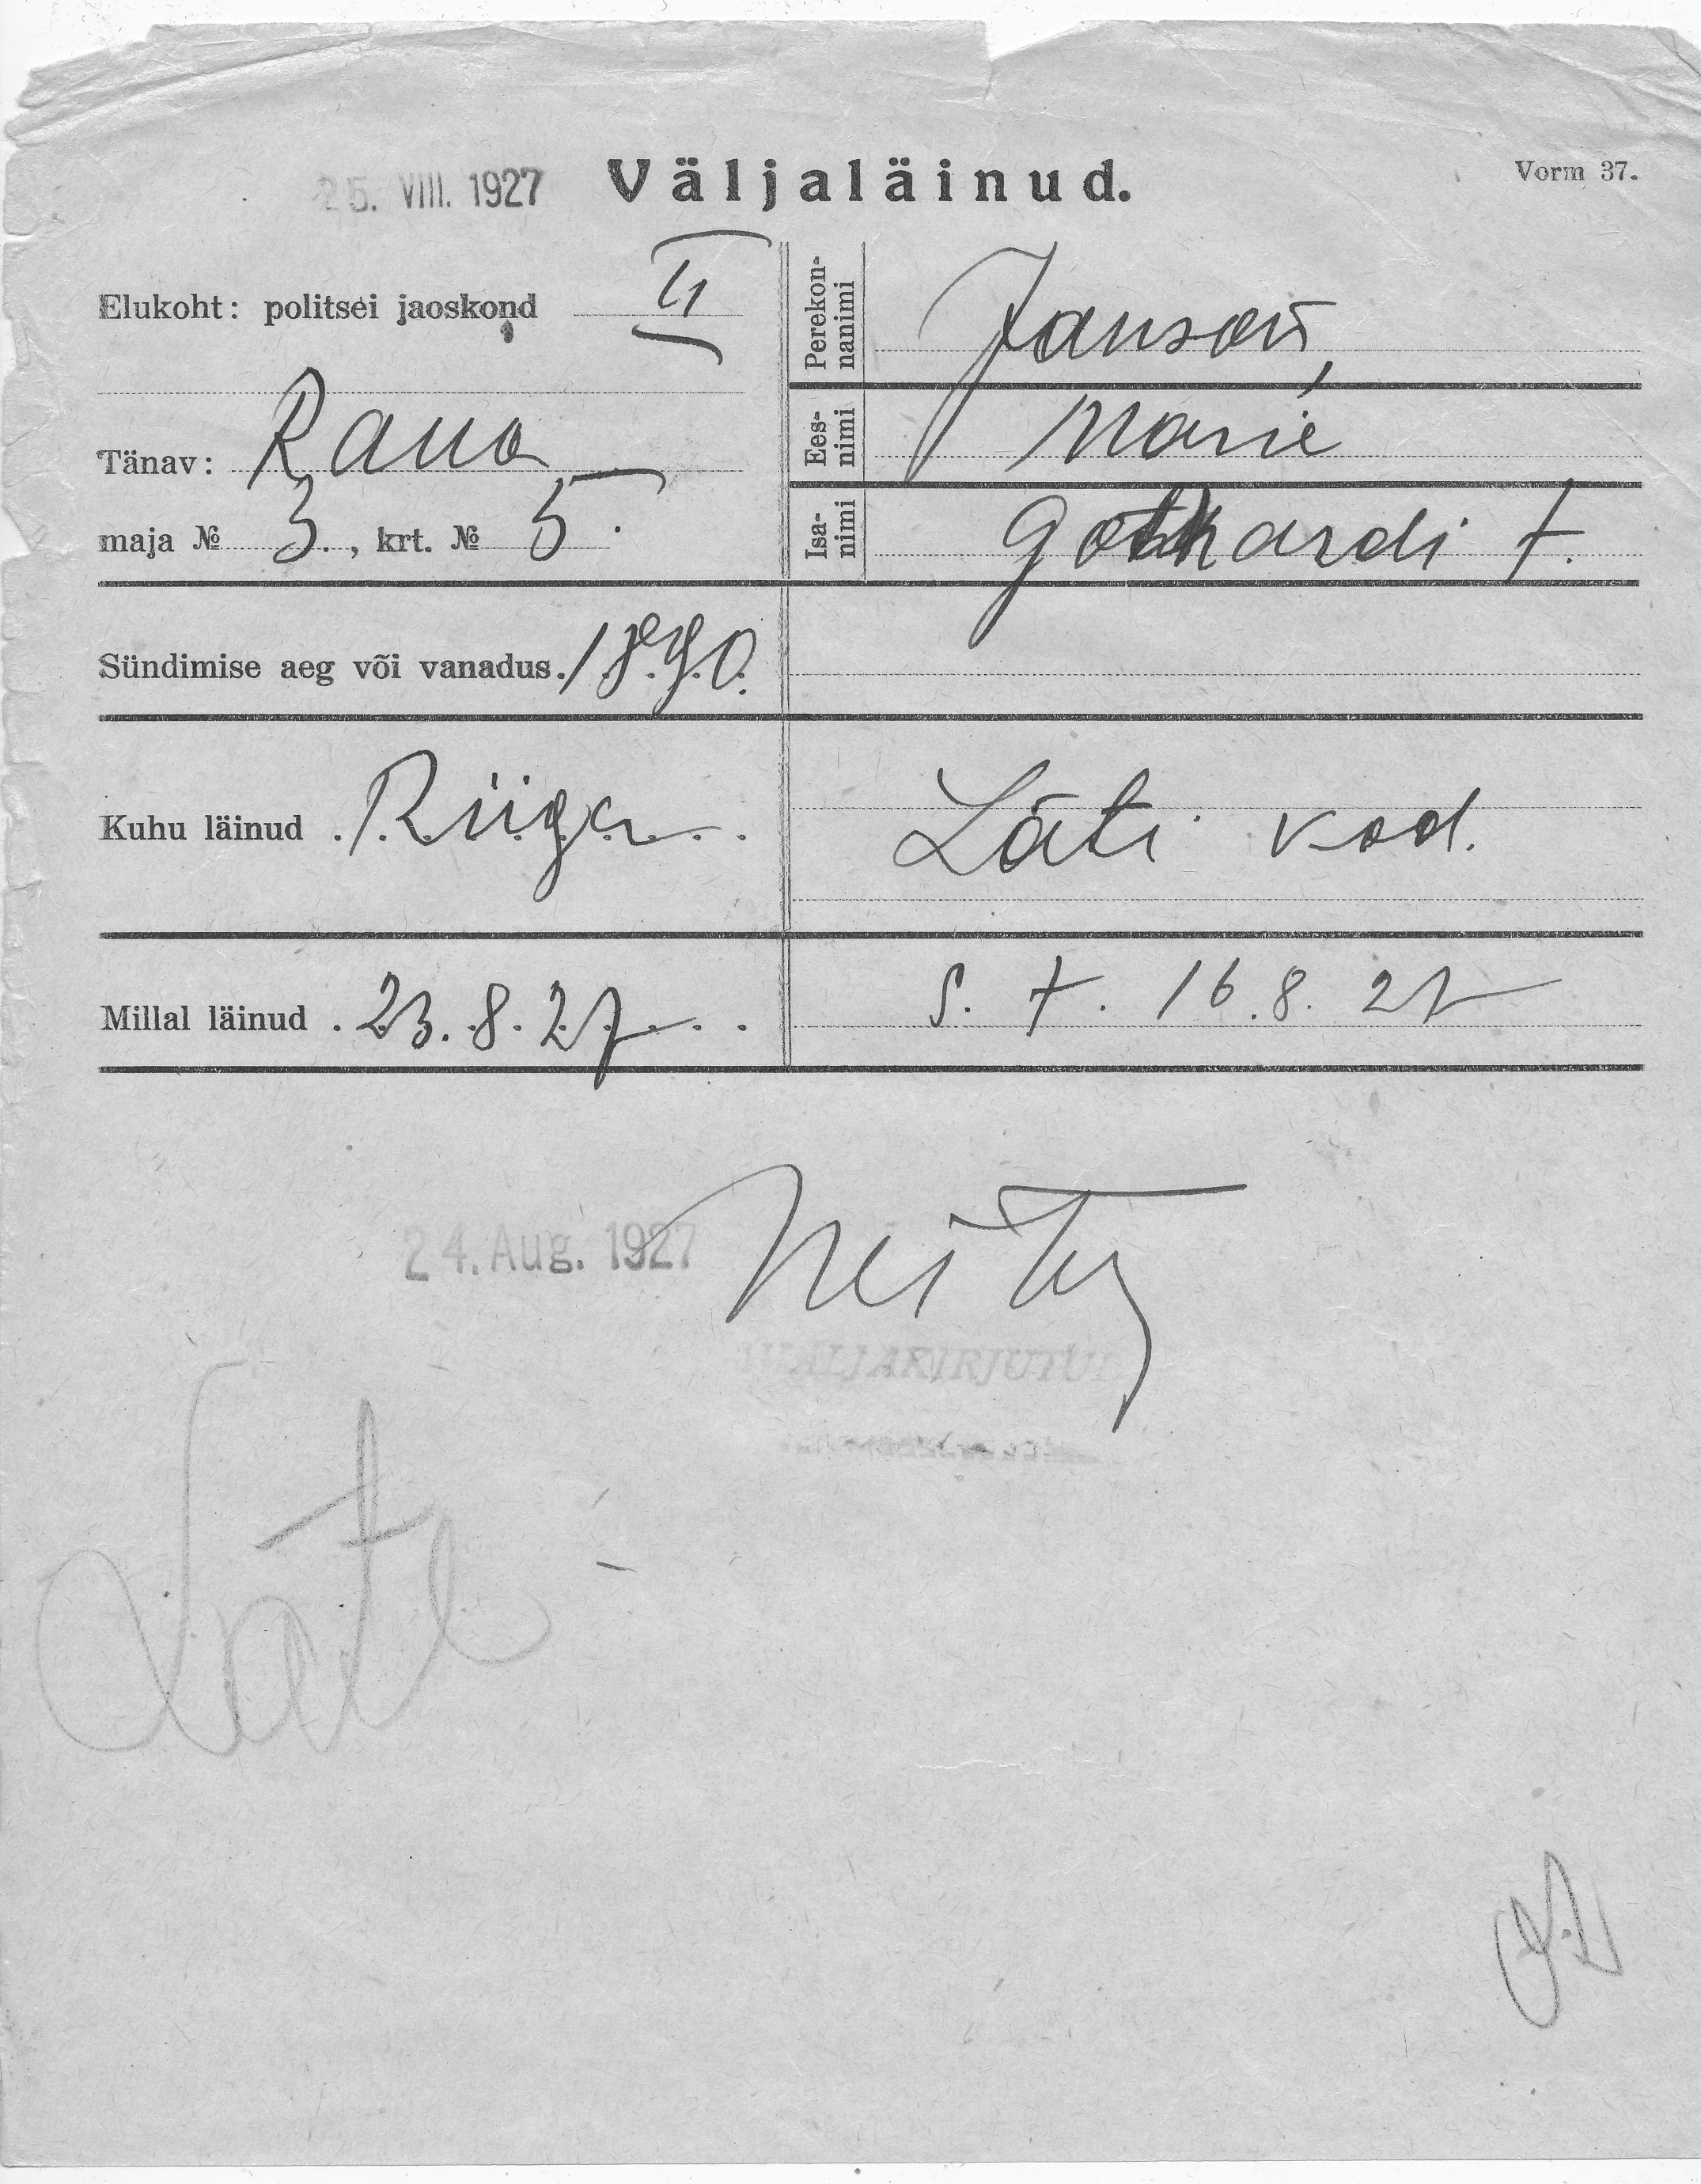 25. VIII. 1927 Väljaläinud. Vorm 37.
Elukoht: politsei jaoskond II
Tänav: Raua
maja № 3., krt. № 5.
Perekonnanimi Janson,
Eesnimi Marie
Isanimi Gothardi t.
Sündimise aeg või vanadus. 1890.
Kuhu läinud Riiga
Läti kod.
Millal läinud 23.8.27
S. t. 16.8.27
24. Aug. 1927
Läti